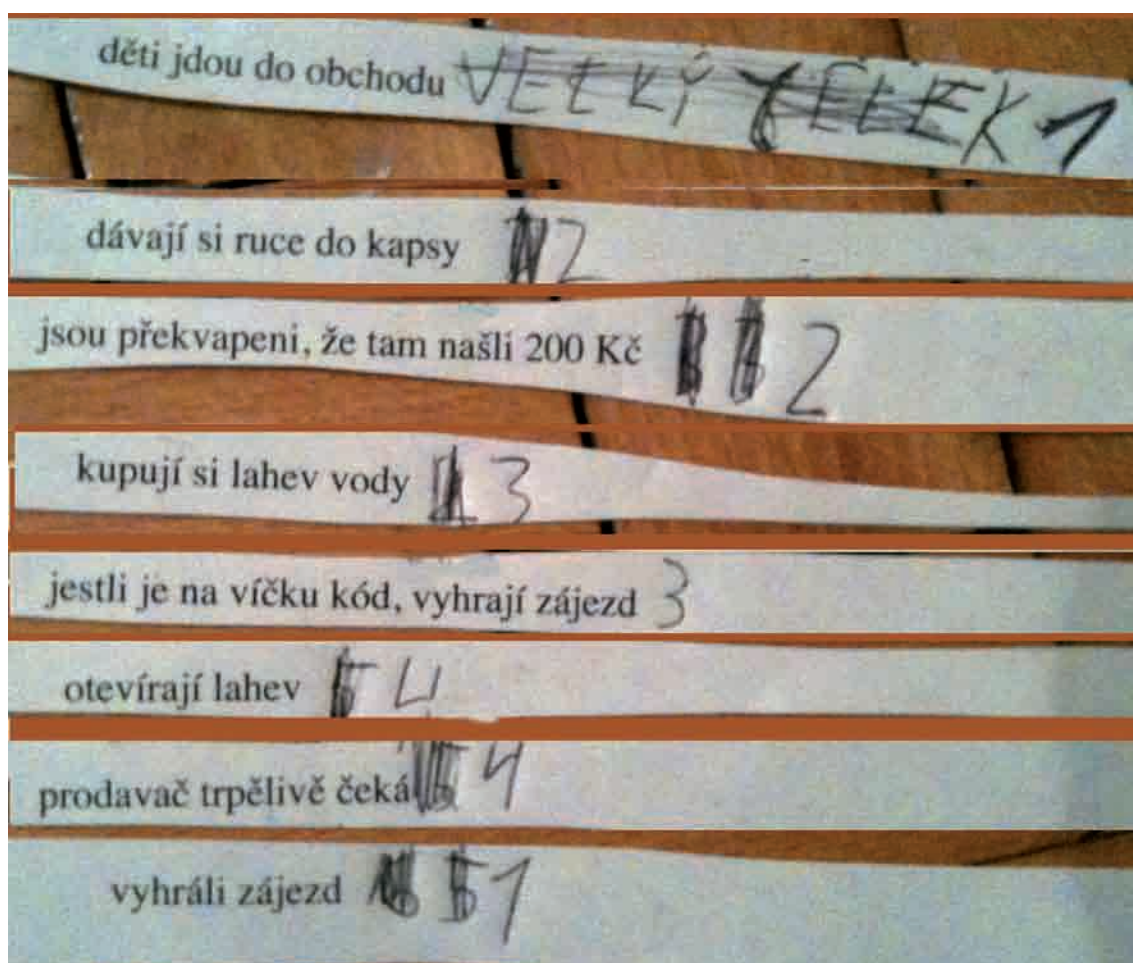 děti jdou do obchodu VELKÝ 1
dávají si ruce do kapsy 2
jsou překvapeni, že tam našli 200 Kč 2
kupují si lahev vody 3
jestli je na víčku kód, vyhrají zájezd 3
otevírají lahev 4
prodavač trpělivě čeká 4
vyhráli zájezd 1